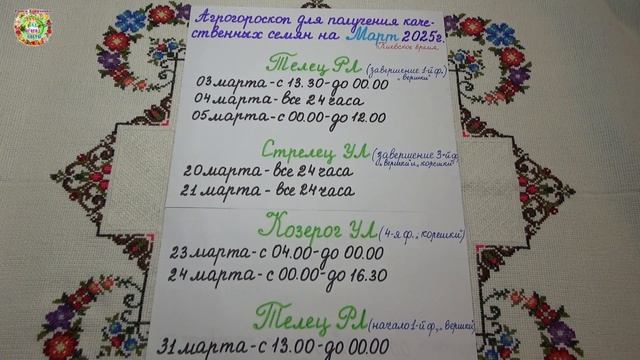 Агрогороскоп для получения каче-
ственных семян на Март 2025г.
Киевское время.
Телец РЛ (завершение 1-й ф.)
"вершки"
03 марта - с 13.30 - до 00.00
04 марта - все 24 часа
05 марта - с 00.00 - до 12.00
Стрелец УЛ (завершение 3-й ф.
"вершки и корешки"
20 марта - все 24 часа
21 марта - все 24 часа
Козерог УЛ (4-я ф., корешки")
23 марта - с 04.00 - до 00.00
24 марта - с 00.00 - до 16.30
Телец РЛ (начало 1-й ф., "вершки")
31 марта - с 13.00 - до 00.00